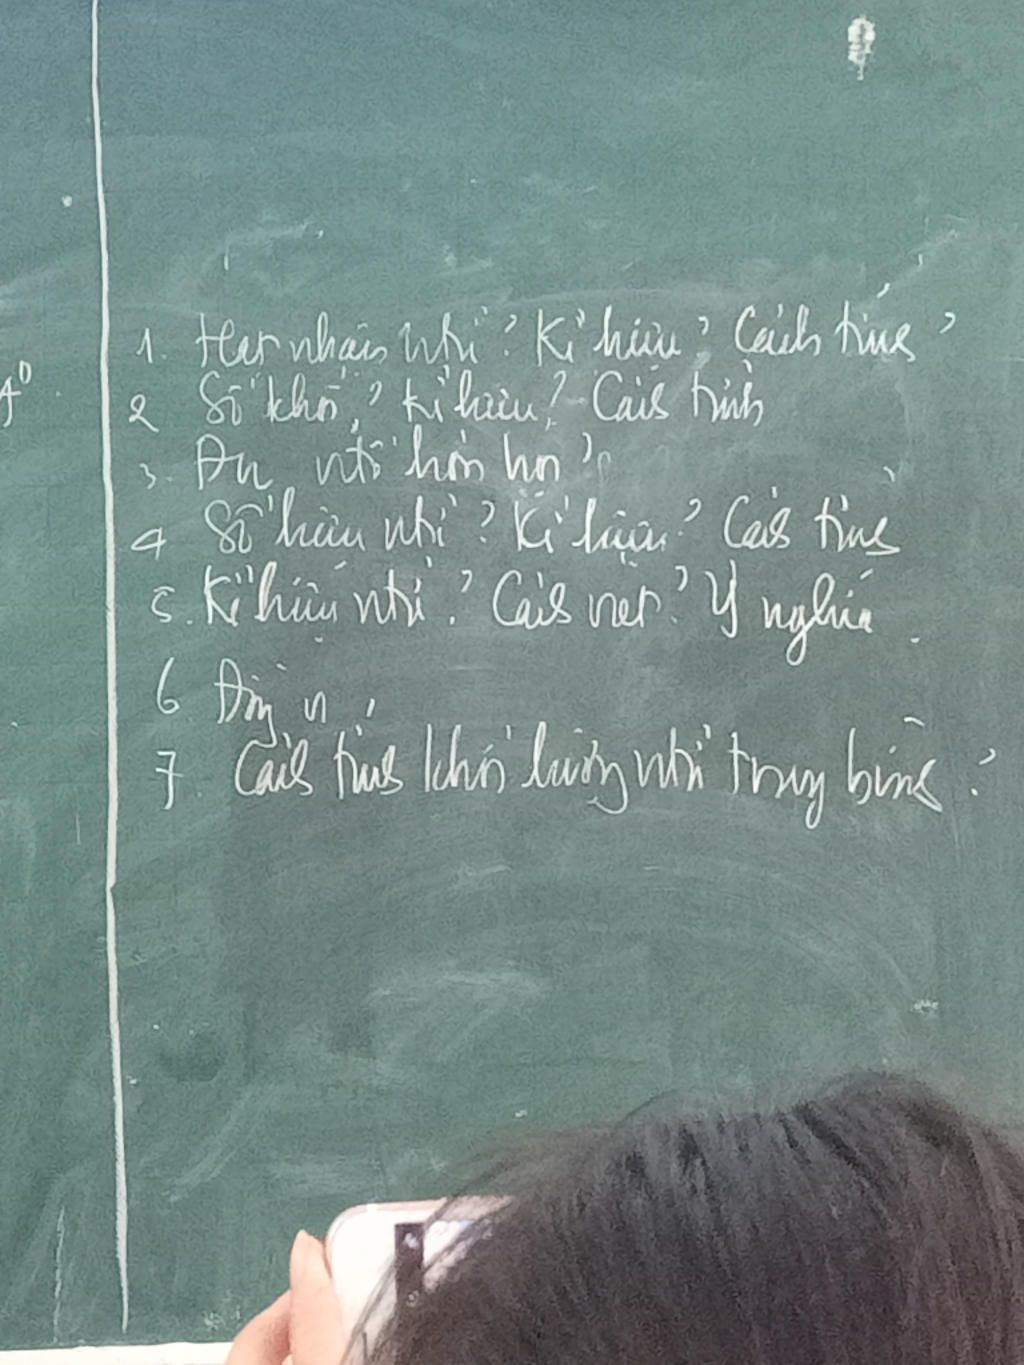 1. Hạt nhân ntử? Kí hiệu? Cách tính?
2 Số khối? kí hiệu? Cách tính
3. Đn ntố hóa học?
4 Số hiệu ntử? Kí hiệu? Cách tính
5. Kí hiệu ntử? Cách viết? Ý nghĩa
6 Đồng vị
7 Cách tính khối lượng ntử trung bình?